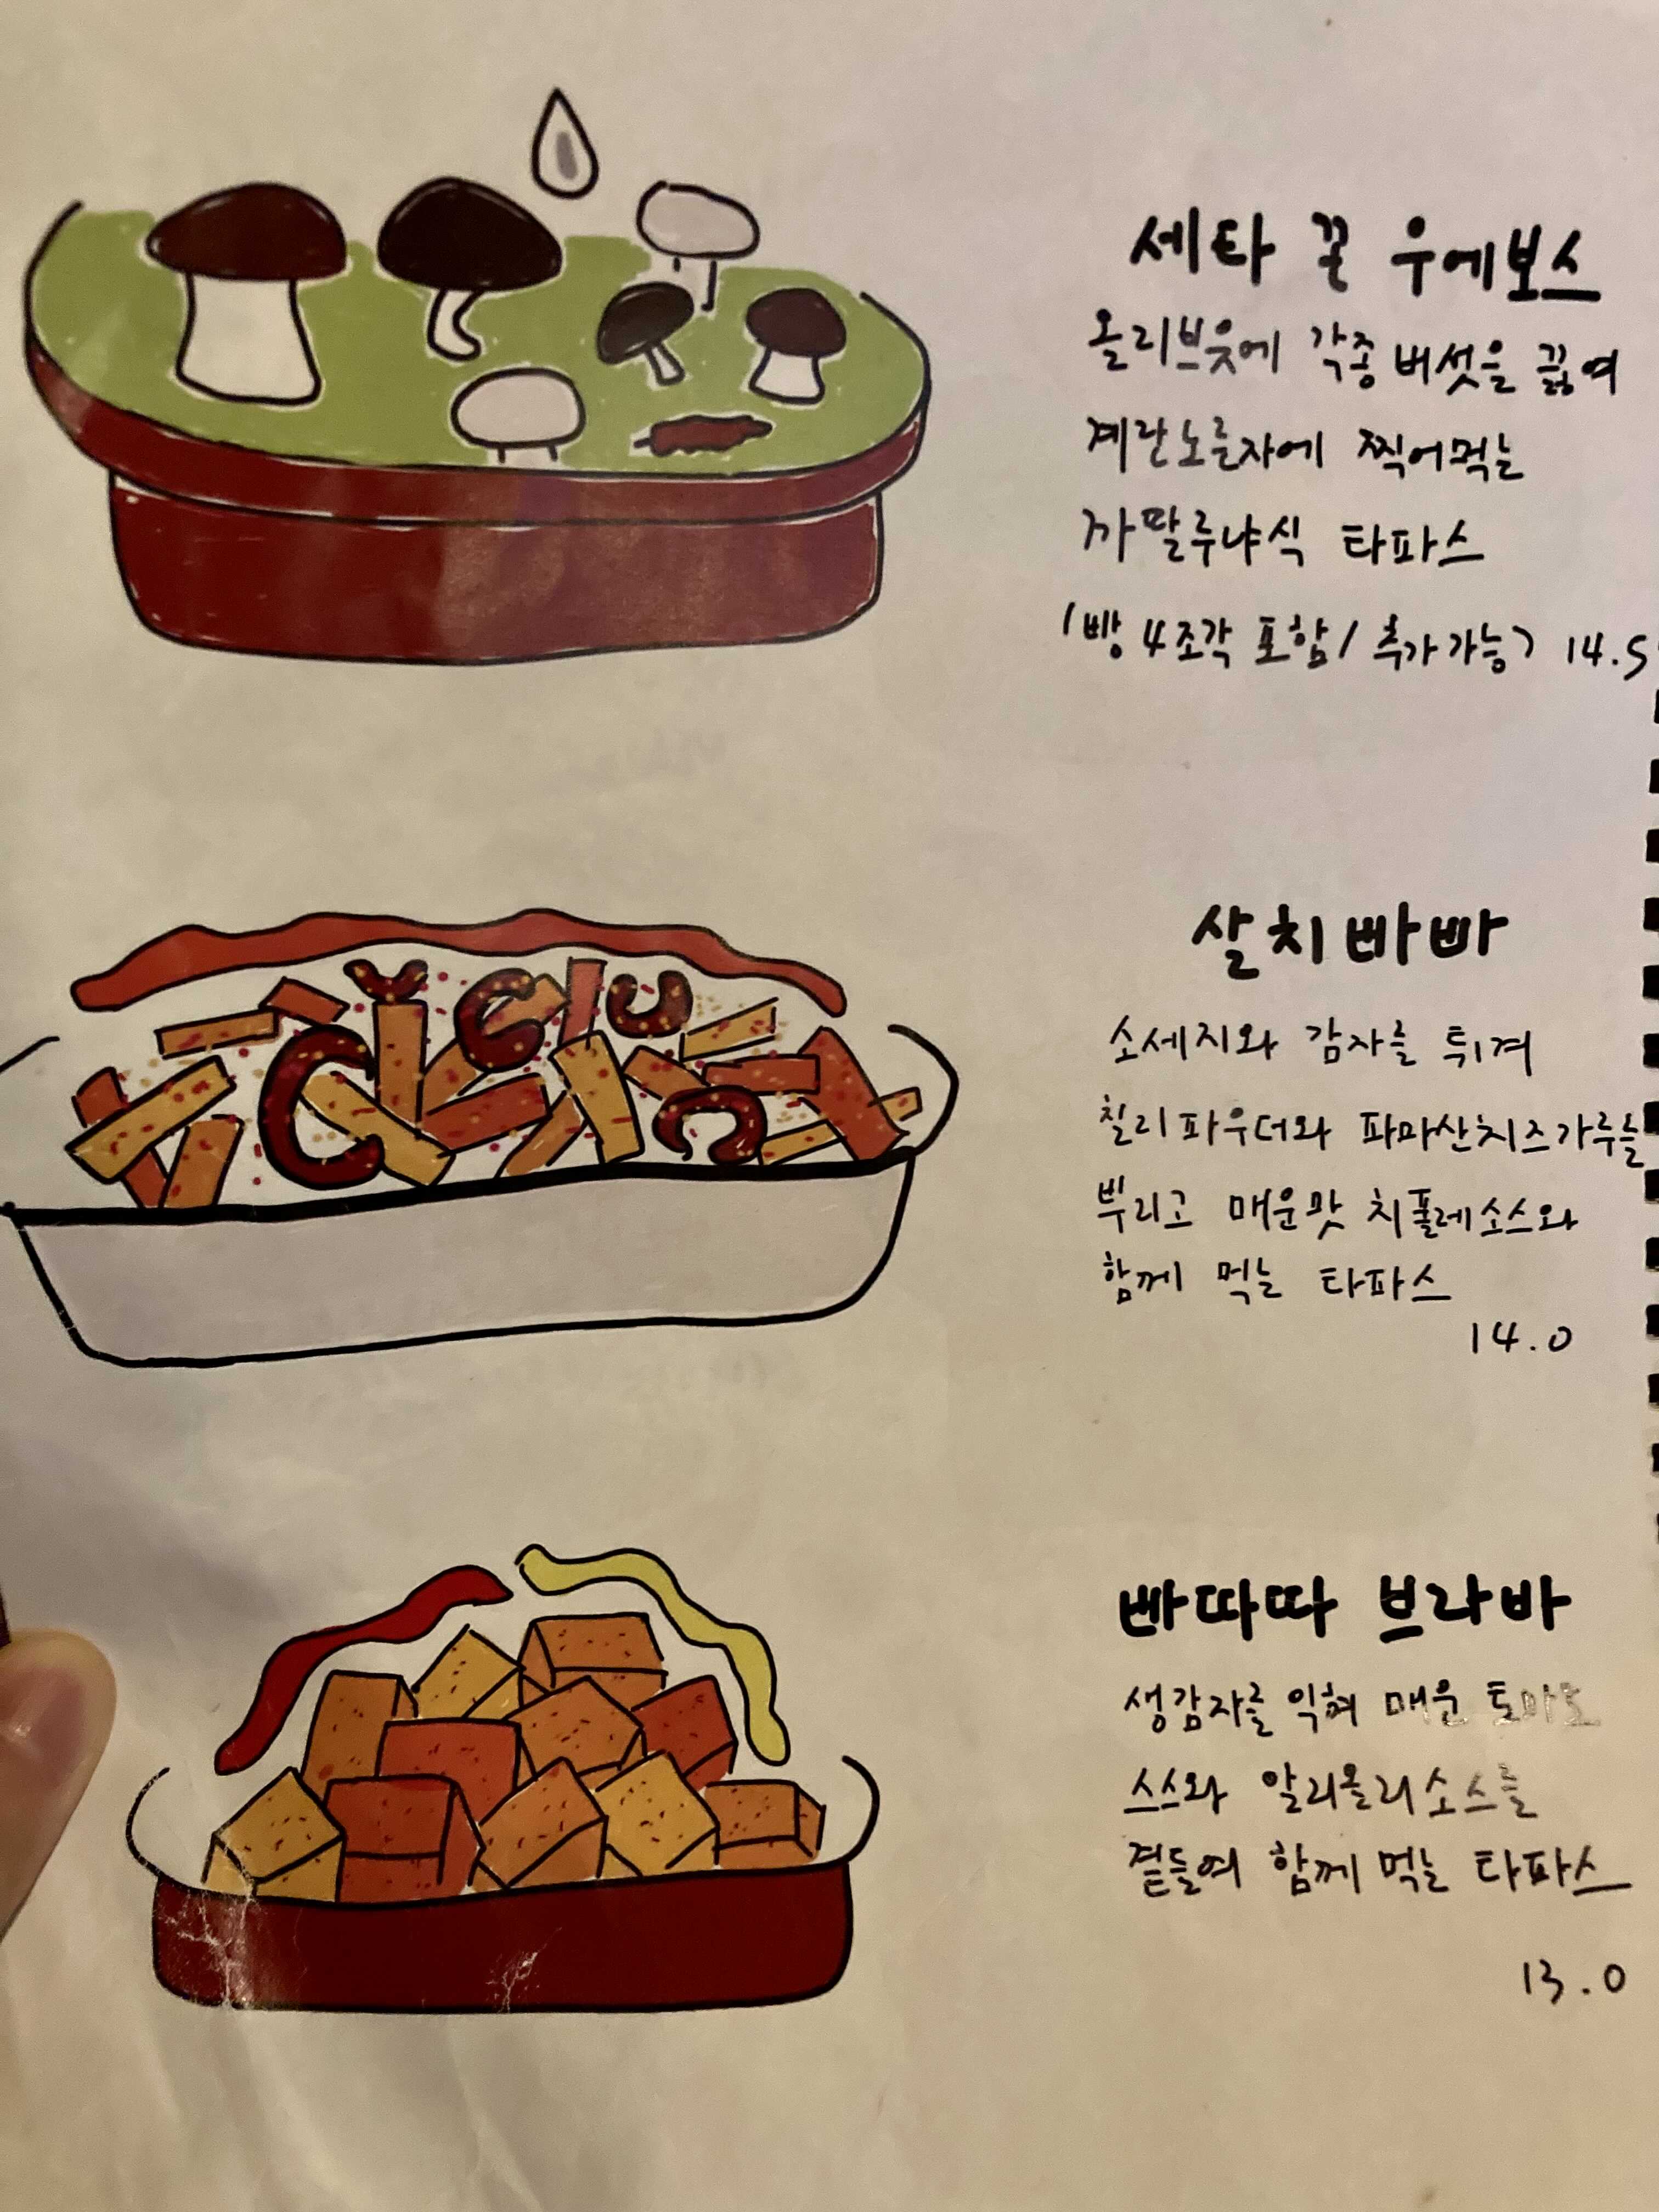 세타 꼰 우에보스
올리브윳에 각종버섯을 끓여
계란노른자에 찍어먹는
까딸루냐식 타파스
(빵 4조각 포함/ 추가가능) 14.5
살치빠빠
소세지와 감자를 튀겨
칠리파우더와 파마산치즈가루를
뿌리고 매운맛 치폴레소스와
함께 먹는 타파스
14.0
빠따따 브라바
생감자를 익혀 매운 토마토
스스와 알리올리소스를
곁들여 함께 먹는 타파스
13.0